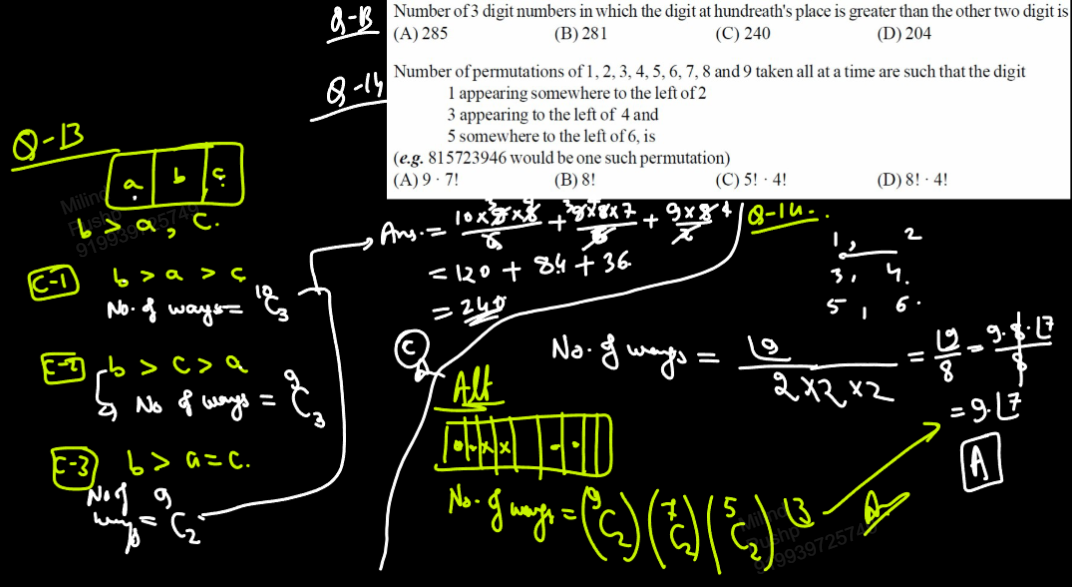 Q-13
Number of 3 digit numbers in which the digit at hundreath's place is greater than the other two digit is
(A) 285 (B) 281 (C) 240 (D) 204
Q-14
Number of permutations of 1, 2, 3, 4, 5, 6, 7, 8 and 9 taken all at a time are such that the digit
1 appearing somewhere to the left of 2
3 appearing to the left of 4 and
5 somewhere to the left of 6, is
(e.g. 815723946 would be one such permutation)
(A) 9 · 7! (B) 8! (C) 5! · 4! (D) 8! · 4!
Q-13
a b c
b > a, c.
C-1 b > a > c
No. of ways = ¹⁰C₃
C-2 b > c > a
No of ways = ⁹C₃
C-3 b > a = c.
No of ways = ⁹C₂
= 120 + 84 + 36
= 240
C
Q-14.
1, 2
3, 4.
5, 6.
No. of ways = ⌊9 / 2×2×2 = ⌊9 / 8 = 9·8·⌊7 / 8
= 9·⌊7
A
Alt
No. of ways = (⁹C₂) (⁷C₂) (⁵C₂) ⌊3